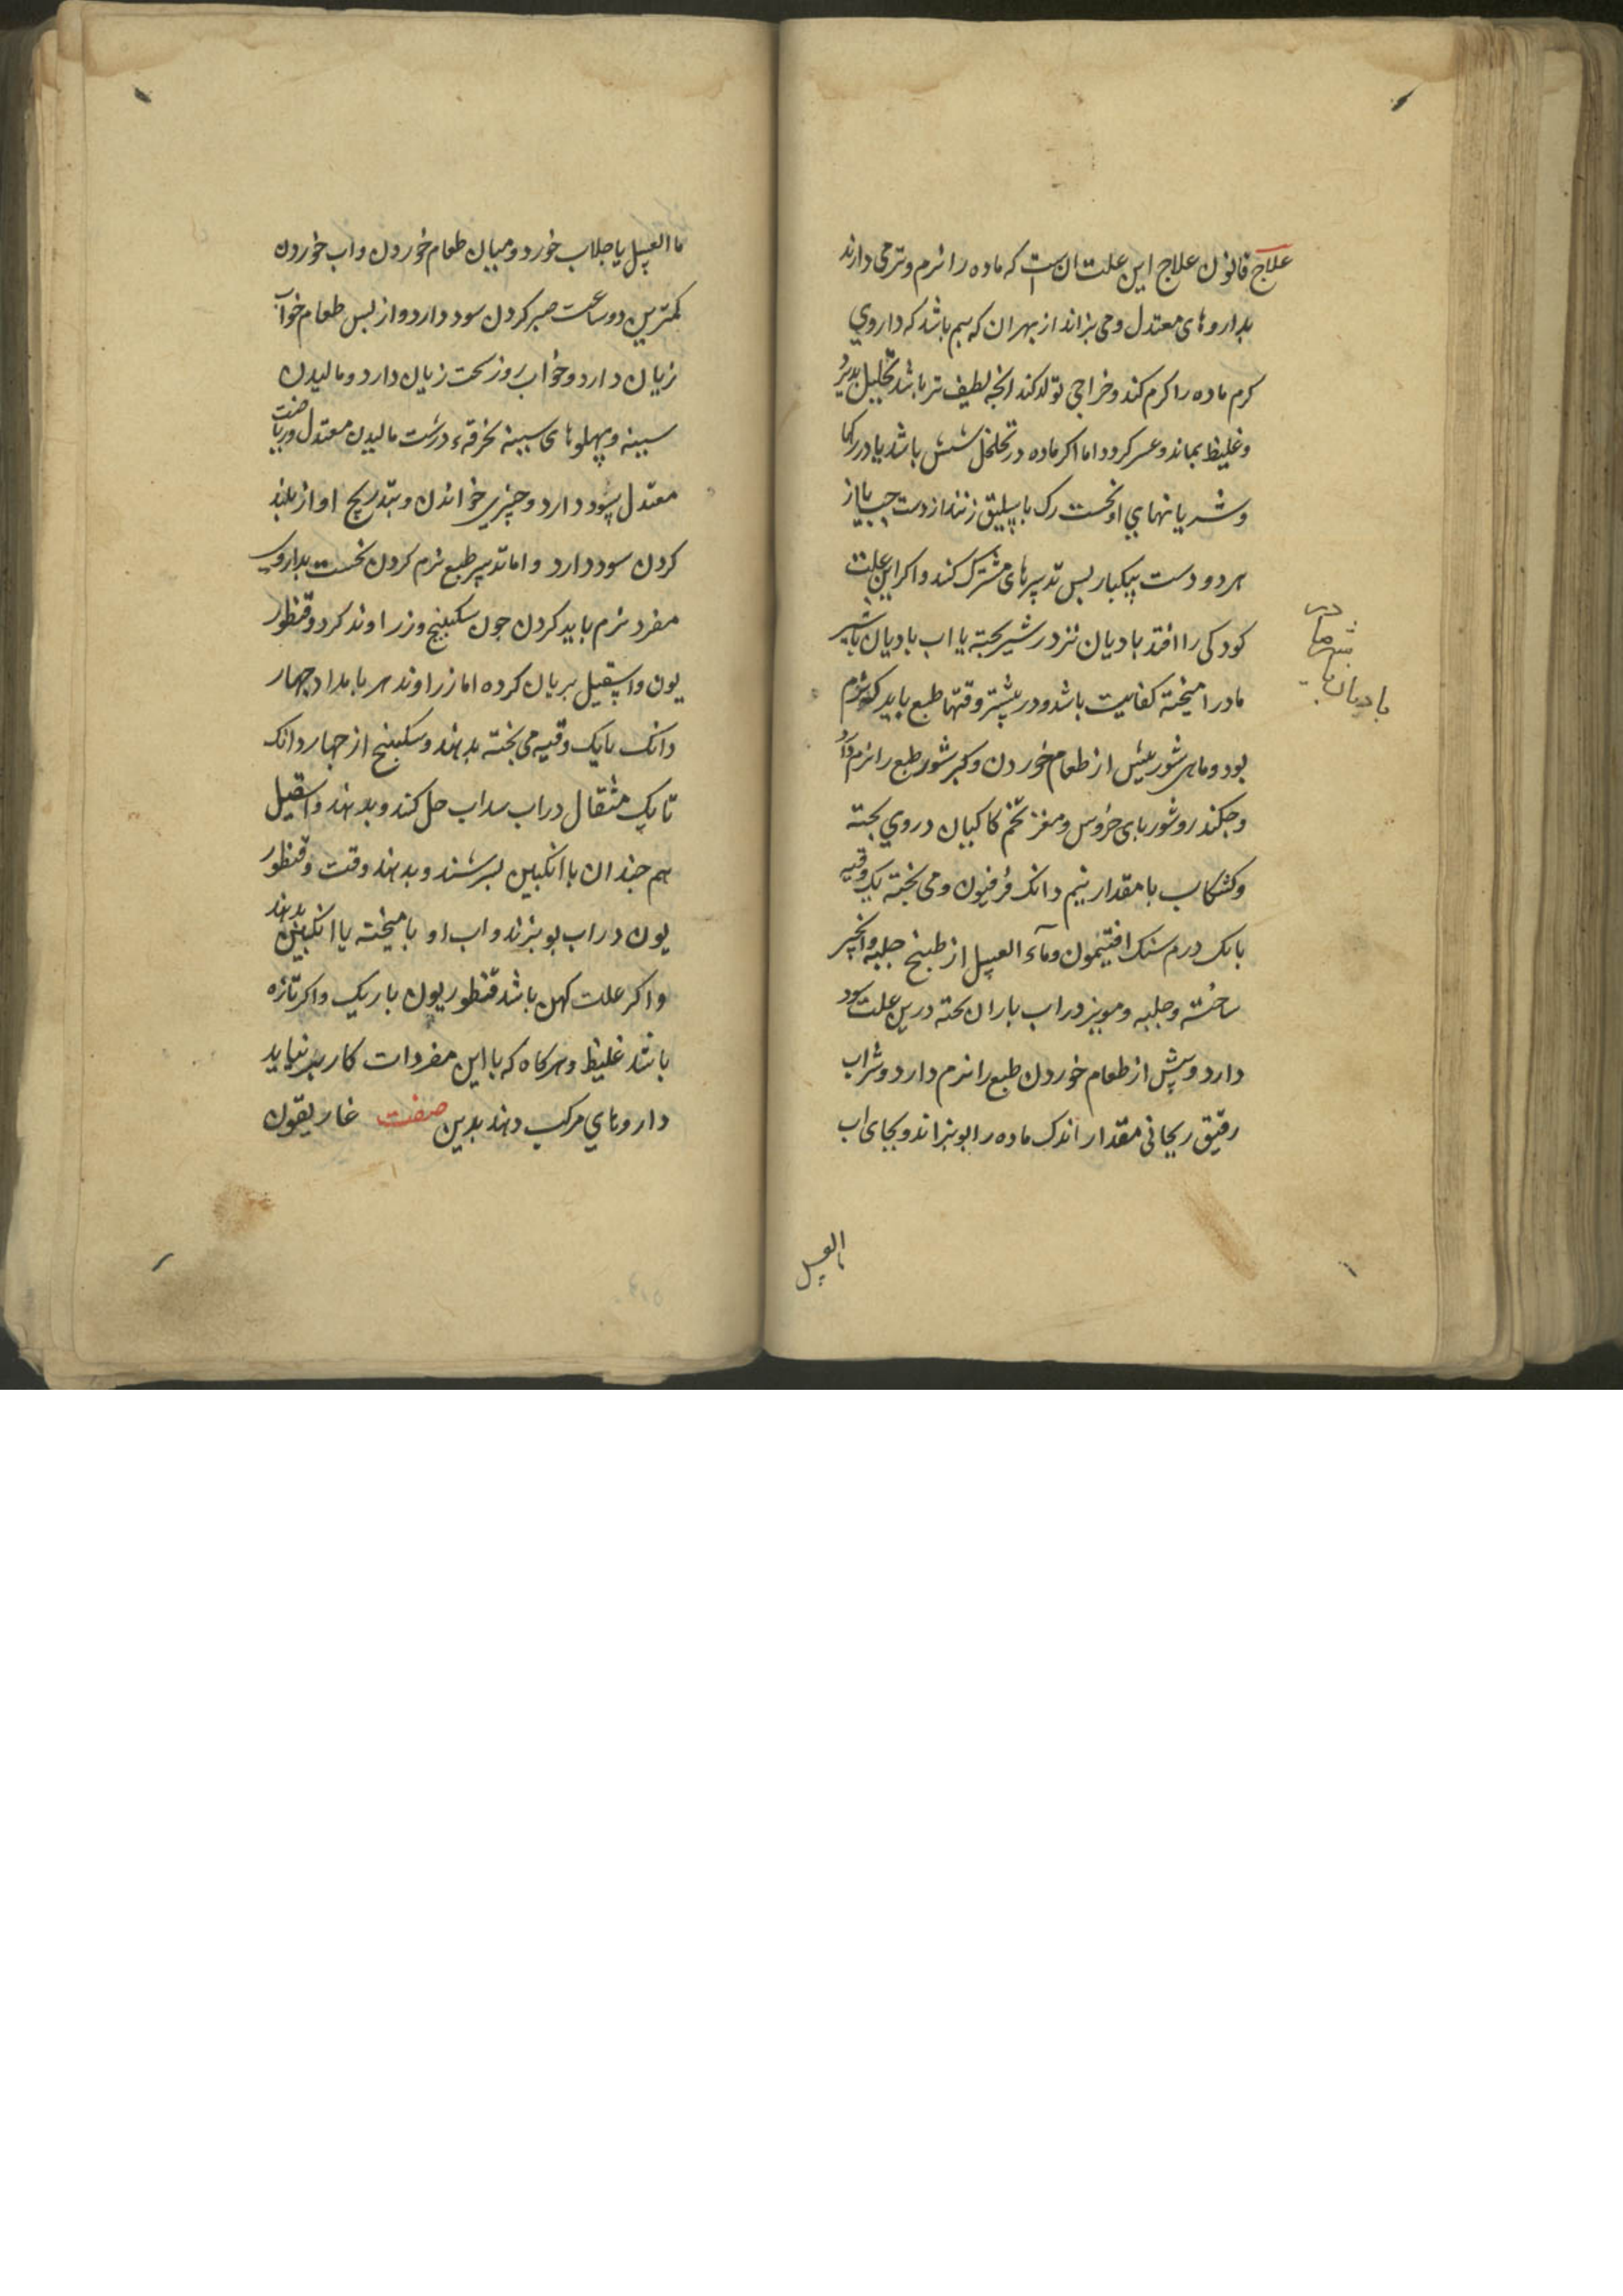 علاج قانون علاج این علت ان است که ماده را نرم و تر می دارند
بداروهای معتدل و می بزاند از بهر ان که بیم باشد که داروي
کرم ماده را کرم کند و خراجی تولد کند انچه لطیف تر باشد تحلیل بدیرد
و غلیظ بماند و عسر کردد اما اکر ماده در تخلخل شش باشد یا در رکها
و شریانهاي او نخست رک باسلیق زنند از دست جب یا از
هر دو دست بیکبار بس تدبیرهای مشترک کند و اکر این علت
کودکی را افتد بادیان تر در شیر بجته یا اب بادیان با شیر
مادر امیخته کفایت باشد و در بیشتر وقتها طبع باید که نرم
بود و ماهی شور بیش از طعام خوردن و کبر شور طبع را نرم دارد
و جکندر و شوربای خروس و مغز تخم کاکیان در وي بجته
و کشکاب با مقدار نیم دانک فرفیون و می بخته یک وقیه
با یک درم سنک افتیمون و مآء العسل از طبیخ حلبه و انجیر
ساخته و حلبه و مویز در اب باران بحته درین علت سود
دارد و بیش از طعام خوردن طبع را نرم دارد و شراب
رقیق ریحانی مقدار اندک ماده را بوبزاند و بجای اب
ما العسل
در
شیر مادر
بادیان با
ما العسل یا جلاب خورد و میان طعام خوردن و اب خوردن
کمترین دو ساعت صبر کردن سود دارد و از بس طعام خواب
زیان دارد و خواب روز سخت زیان دارد و مالیدن
سینه و بهلوهای سینه بخرقهء درشت مالیدن معتدل و ریاضت
معتدل سود دارد و جیزي خواندن و بتدریج اواز بلند
کردن سود دارد و اما تدبیر طبع نرم کردن نخست بداروي
مفرد نرم باید کردن جون سکبینج و زراوند کرد و قنطور
یون و اسقیل بریان کرده اما زراوند هر بامداد جهار
دانک با یک وقیه می بخته بدهند و سکبینج از جهار دانک
تا یک مثقال در اب سداب حل کند و بدهند و اسقیل
هم جندان با انکبین بسرشند و بدهند وقت و قنطور
یون در اب بوبزند و اب او بامیخته با انکبین بدهند
و اکر علت کهن باشد قنطوریون باریک و اکر تازه
باشد غلیظ و هرکاه که با این مفردات کار بر نیاید
داروهاي مرکب دهند بدین صفت غاریقون